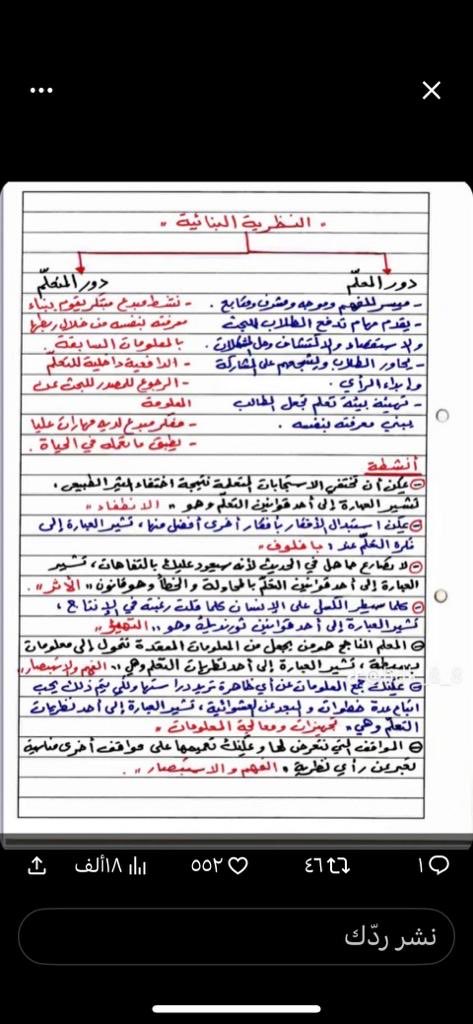 " النظرية البنائية "
دور المعلّم
- ميسر للفهم وموجه ومشرف ومتابع .
- يقدم مهام تدفع الطلاب للبحث
والاستقصاء والاكتشاف وحل المشكلات .
- يحاور الطلاب ويشجعهم على المشاركة
وابداء الرأي .
- تهيئة بيئة تعلم تجعل الطالب
يبني معرفته بنفسه .
دور المتعلّم
- نشط مبدع مبتكر يقوم ببناء
معرفته بنفسه من خلال ربطها
بالمعلومات السابقة .
- الدافعية داخلية للتعلّم
- الرجوع للمصدر للبحث عن
المعلومة
- مفكر مبدع لديه مهارات عليا
- يطبق ما تعلمه في الحياة .
أنشطة
يمكن أن تختفي الاستجابات المتعلمة نتيجة اختفاء المثير الطبيعي ،
تشير العبارة إلى أحد قوانين التعلّم وهو " الانطفاء "
يمكن استبدال الأفكار بأفكار أخرى أفضل منها ، تشير العبارة إلى
التعلّم عند : بافلوف "
لا تصارع جاهل في الحديث لأنه سيعود عليك بالتفاهات ، تشير
العبارة إلى أحد قوانين التعلّم بالمحاولة والخطأ وهو قانون " الأثر " .
كلما سيطر الكسل على الإنسان كلما قلت رغبته في الإنتاج ،
تشير العبارة إلى أحد قوانين ثورندايك وهو ..
المعلم الناجح هو من يجعل من المعلومات المعقدة تتحول إلى معلومات
بسيطة ، تشير العبارة إلى أحد نظريات التعلم وهي " الفهم والاستبصار "
يمكنك جمع المعلومات عن أي ظاهرة تريد دراستها ولكي يتم ذلك يجب
اتباع عدة خطوات والبعد عن العشوائية ، تشير العبارة إلى أحد نظريات
التعلّم وهي " تجهيزات ومعالجة المعلومات "
المواقف التي نتعرض لها ويمكنك تعميمها على مواقف أخرى مشابهة
تعبر عن رأي نظرية " الفهم والاستبصار " .
١
٤٦
٥٥٢
١٨ألف
نشر ردّك